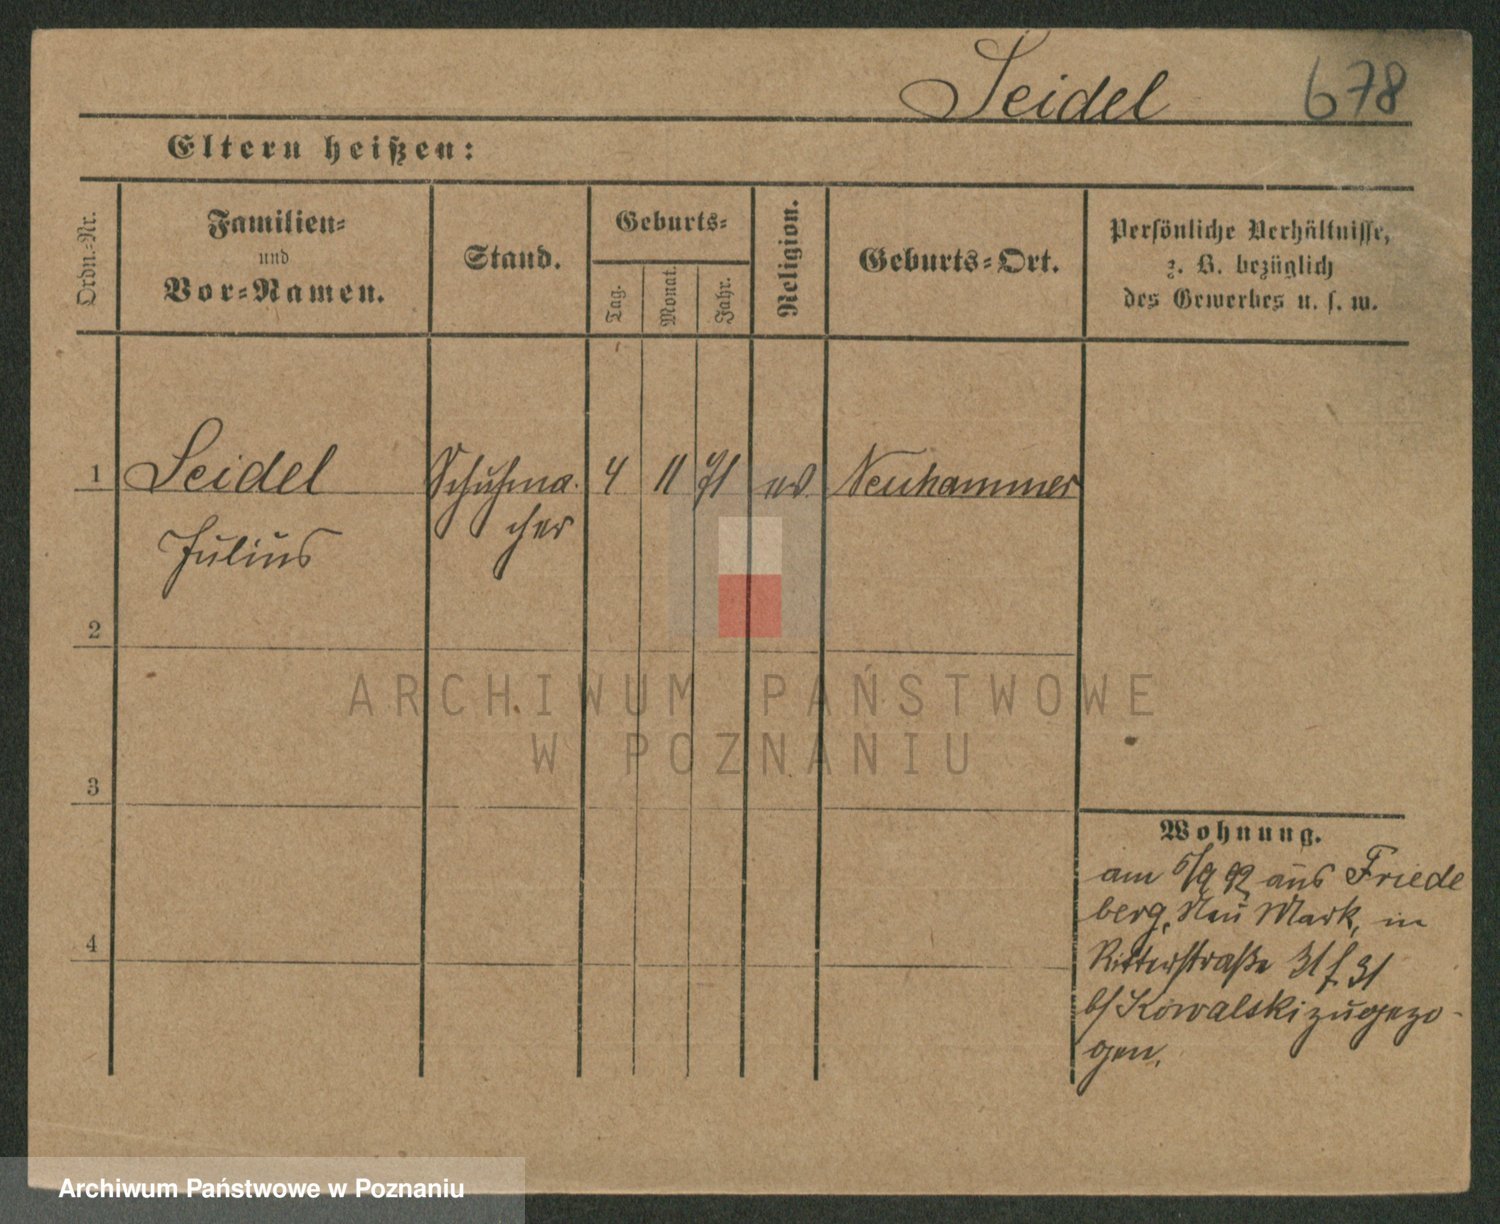 Seidel 678
Eltern heißen:
Ordn.-Nr.
Familien-
und
Vor-Namen.
Stand.
Geburts-
Tag.
Monat.
Jahr.
Religion.
Geburts-Ort.
Persönliche Verhältnisse,
z. B. bezüglich
des Gewerbes u. s. w.
1 Seidel Schuhma- 4 11 71 ev Neuhammer
Julius cher
2
ARCHIWUM PAŃSTWOWE
W POZNANIU
3
Wohnung.
am 5/9 92 aus Friede
berg, Neu Mark, in
Ritterstraße 31 f 31
b/ Kowalski zugezo-
gen.
4
Archiwum Państwowe w Poznaniu